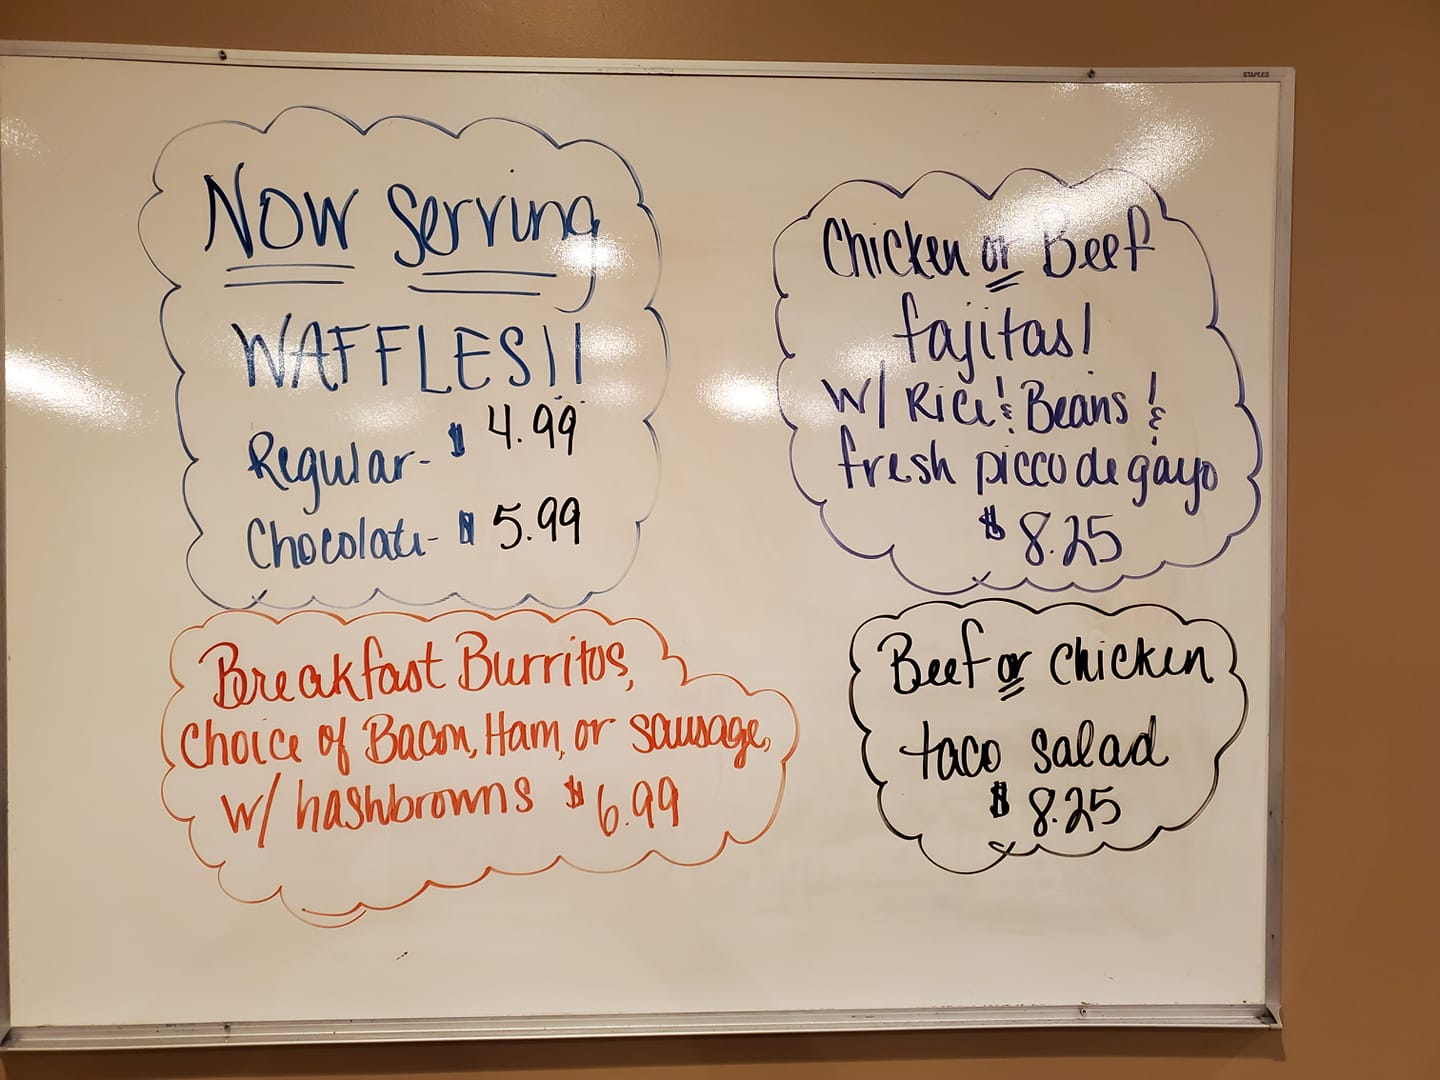 STAPLES
Now Serving
WAFFLES!!
Regular - $ 4.99
Chocolate - $ 5.99
Breakfast Burritos,
Choice of Bacon, Ham, or sausage,
w/ hashbrowns $6.99
Chicken or Beef
fajitas!
w/ Rice & Beans &
fresh picco de gayo
$8.25
Beef or chicken
taco salad
$8.25